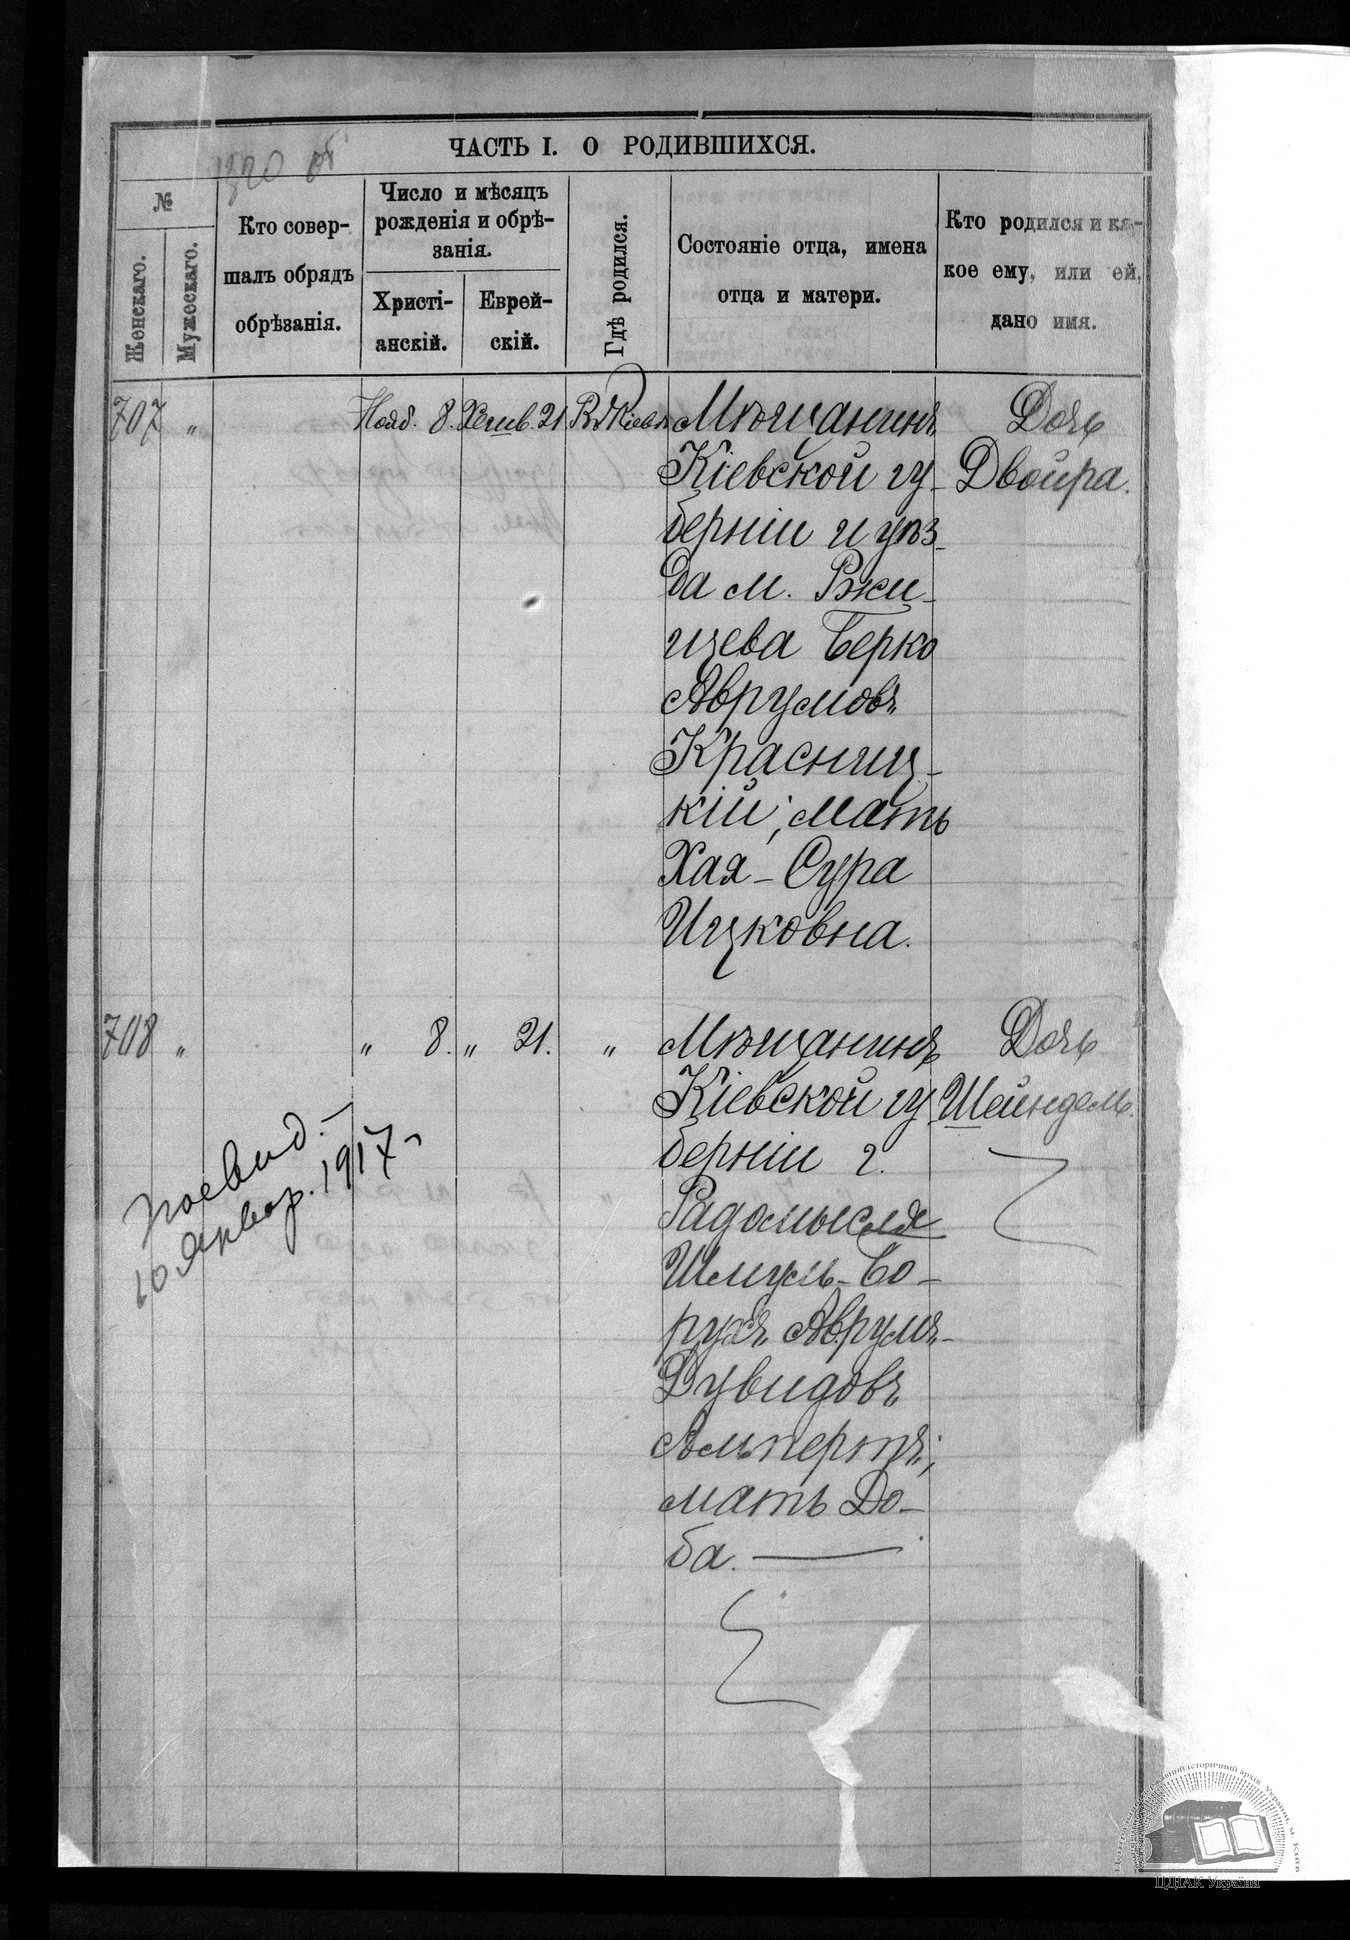 1320 об
ЧАСТЬ I. О РОДИВШИХСЯ.
№
Женскаго.
Мужескаго.
Кто совер-
шалъ обрядъ
обрѣзанія.
Число и мѣсяцъ
рожденія и обрѣ-
занія.
Христі-
анскій.
Еврей-
скій.
Гдѣ родился.
Состояніе отца, имена
отца и матери.
Кто родился и ка-
кое ему, или ей,
дано имя.
707 „ Нояб. 8. Хешв. 21 Въ Кіевѣ Мѣщанинъ Дочь
Кіевской гу- Двойра.
берніи и уѣз-
да м. Ржи-
щева Берко
Аврумовъ
Красниц-
кій, мать
Хая-Сура
Ицковна.
708 „ „ 8. „ 21. „ Мѣщанинъ Дочь
Кіевской гу Шейндель.
берніи г.
Радомысля
Шмуль-Бо-
рухъ Аврумъ-
Дувидовъ
Альпертъ;
мать До-
ба.
10 Январ. 1917 г.
ЦДІАК України